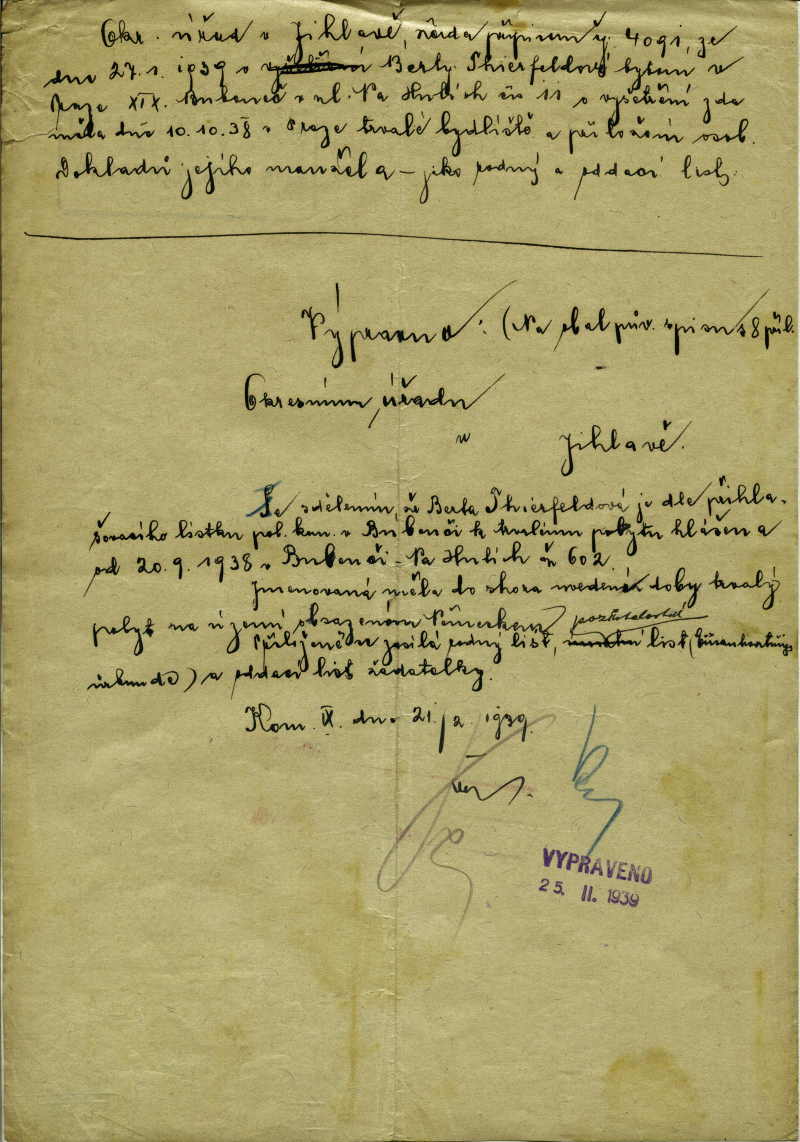 Okr. úřad v Jihlavě, žádá přípisem čj. 4091, ze
dne 27.1.1939 o Berty Thierfeldové bytem v
Praze XIX. Bubeneč v ul. Na Hutích čís 11 o vyšetření zda
měla dne 10.10.38 v Praze trvalé bydliště a přiložení osob.
Dokladů jejího manžela – jako rodný a oddací list.
Výpravna: (Na obal pův. spisu s 8 příl.
Okresnímu úřadu
v Jihlavě.
Se sdělením, že Berta Thierfeldová je dle přihla-
šovacího lístku pol. kom. v Bubenči k trvalému pobytu hlášena
od 20.9.1938 v Bubenči – Na Hutích čp 602.
Jmenovaná měla do shora uvedené doby trvalý
pobyt na území obsazeném Německem
pozůstalostní
Připojeně se zasílá rodný list, list
) a oddací list žadatelky.
Kom. IX. dne 21./2. 1939.
VYPRAVENO
25. II. 1939